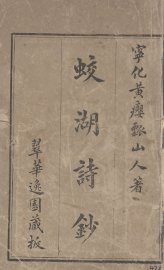 寧化黃癭瓢山人著
蛟湖詩鈔
翠華逸園藏板